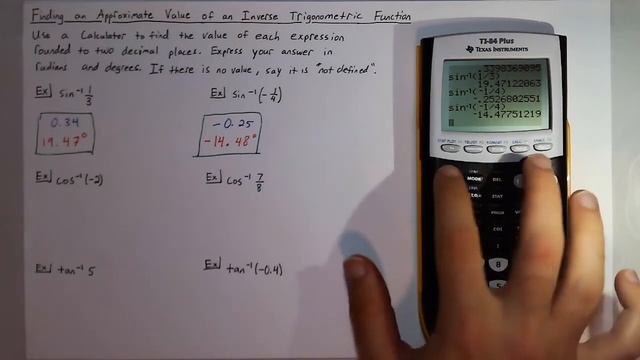 Finding an Approximate Value of an Inverse Trigonometric Function
Use a Calculator to find the value of each expression
rounded to two decimal places. Express your answer in
radians and degrees. If there is no value, say it is "not defined".
Ex] sin⁻¹ 1/3
Ex] sin⁻¹(-1/4)
0.34
19.47°
-0.25
-14.48°
Ex] cos⁻¹(-2)
Ex] cos⁻¹ 7/8
Ex] tan⁻¹ 5
Ex] tan⁻¹(-0.4)
TI-84 Plus
TEXAS INSTRUMENTS
.3398369095
sin⁻¹(1/3)
19.47122063
sin⁻¹(-1/4)
-.2526802551
sin⁻¹(-1/4)
-14.47751219
MODE
DEL
STAT
8